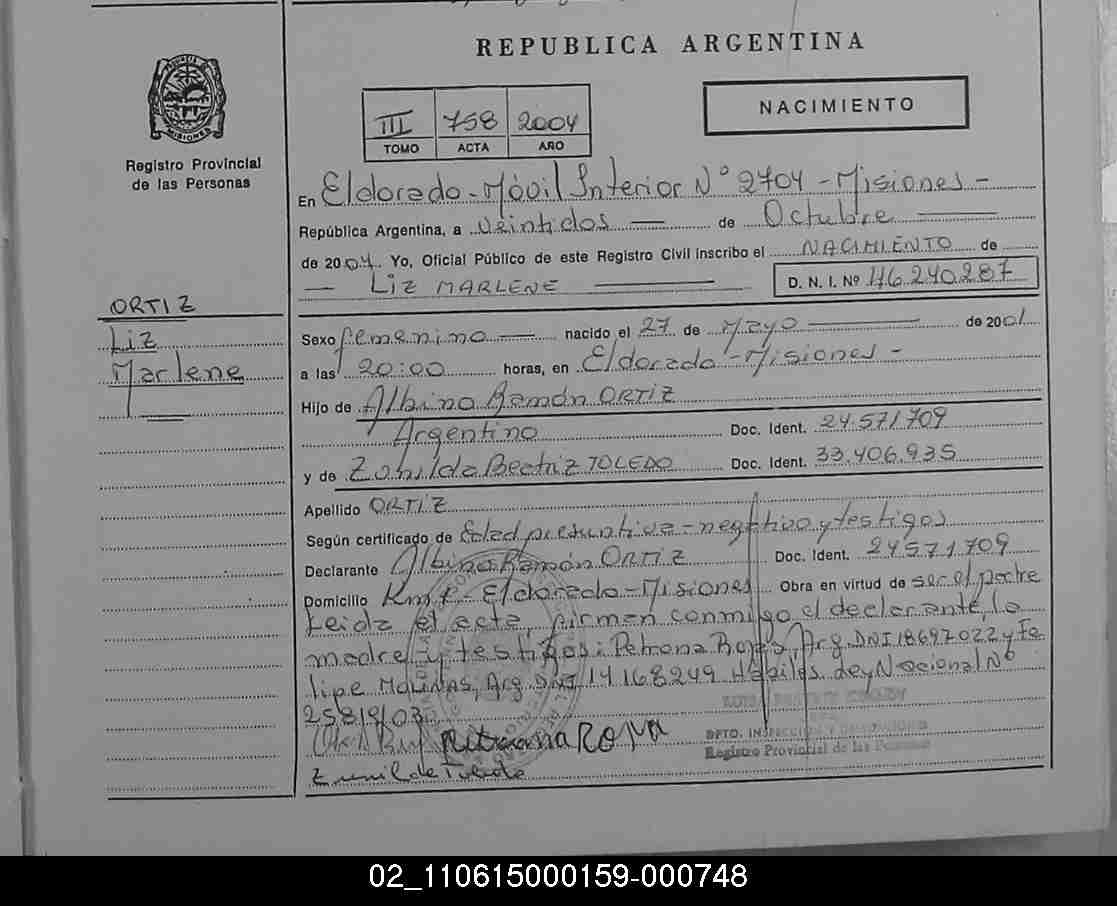 REPUBLICA ARGENTINA
NACIMIENTO
III 758 2004
TOMO ACTA AÑO
PROVINCIA DE MISIONES
Registro Provincial
de las Personas
En Eldorado - Móvil Interior N° 2704 - Misiones -
República Argentina, a veintidos — de Octubre —
de 2004 Yo, Oficial Público de este Registro Civil inscribo el NACIMIENTO de
— LIZ MARLENE — D. N. I. Nº 46.240.287
ORTIZ
Liz
Marlene
Sexo femenino — nacido el 27 de Mayo — de 2001
a las 20:00 horas, en Eldorado - Misiones -
Hijo de Albino Ramón ORTIZ
Argentino Doc. Ident. 24.571.709
y de Zonilda Beatriz TOLEDO Doc. Ident. 33.406.935
Apellido ORTIZ
Según certificado de Edad presuntiva - negativo y testigos
Declarante Albino Ramón ORTIZ Doc. Ident. 24571709
Domicilio Km - Eldorado - Misiones Obra en virtud de ser el padre
Leida el acta, firman conmigo el declarante, la
madre y testigos: Petrona Rojas, Arg. DNI 18697022 y Fe
lipe MOLINAS, Arg. DNI 14168249 Hábiles. Ley Nacional Nº
25819/03
Petrona ROJA
DPTO. INSPECCION Y DELEGACIONES
Registro Provincial de las Personas
Zunilda Toledo
02_110615000159-000748